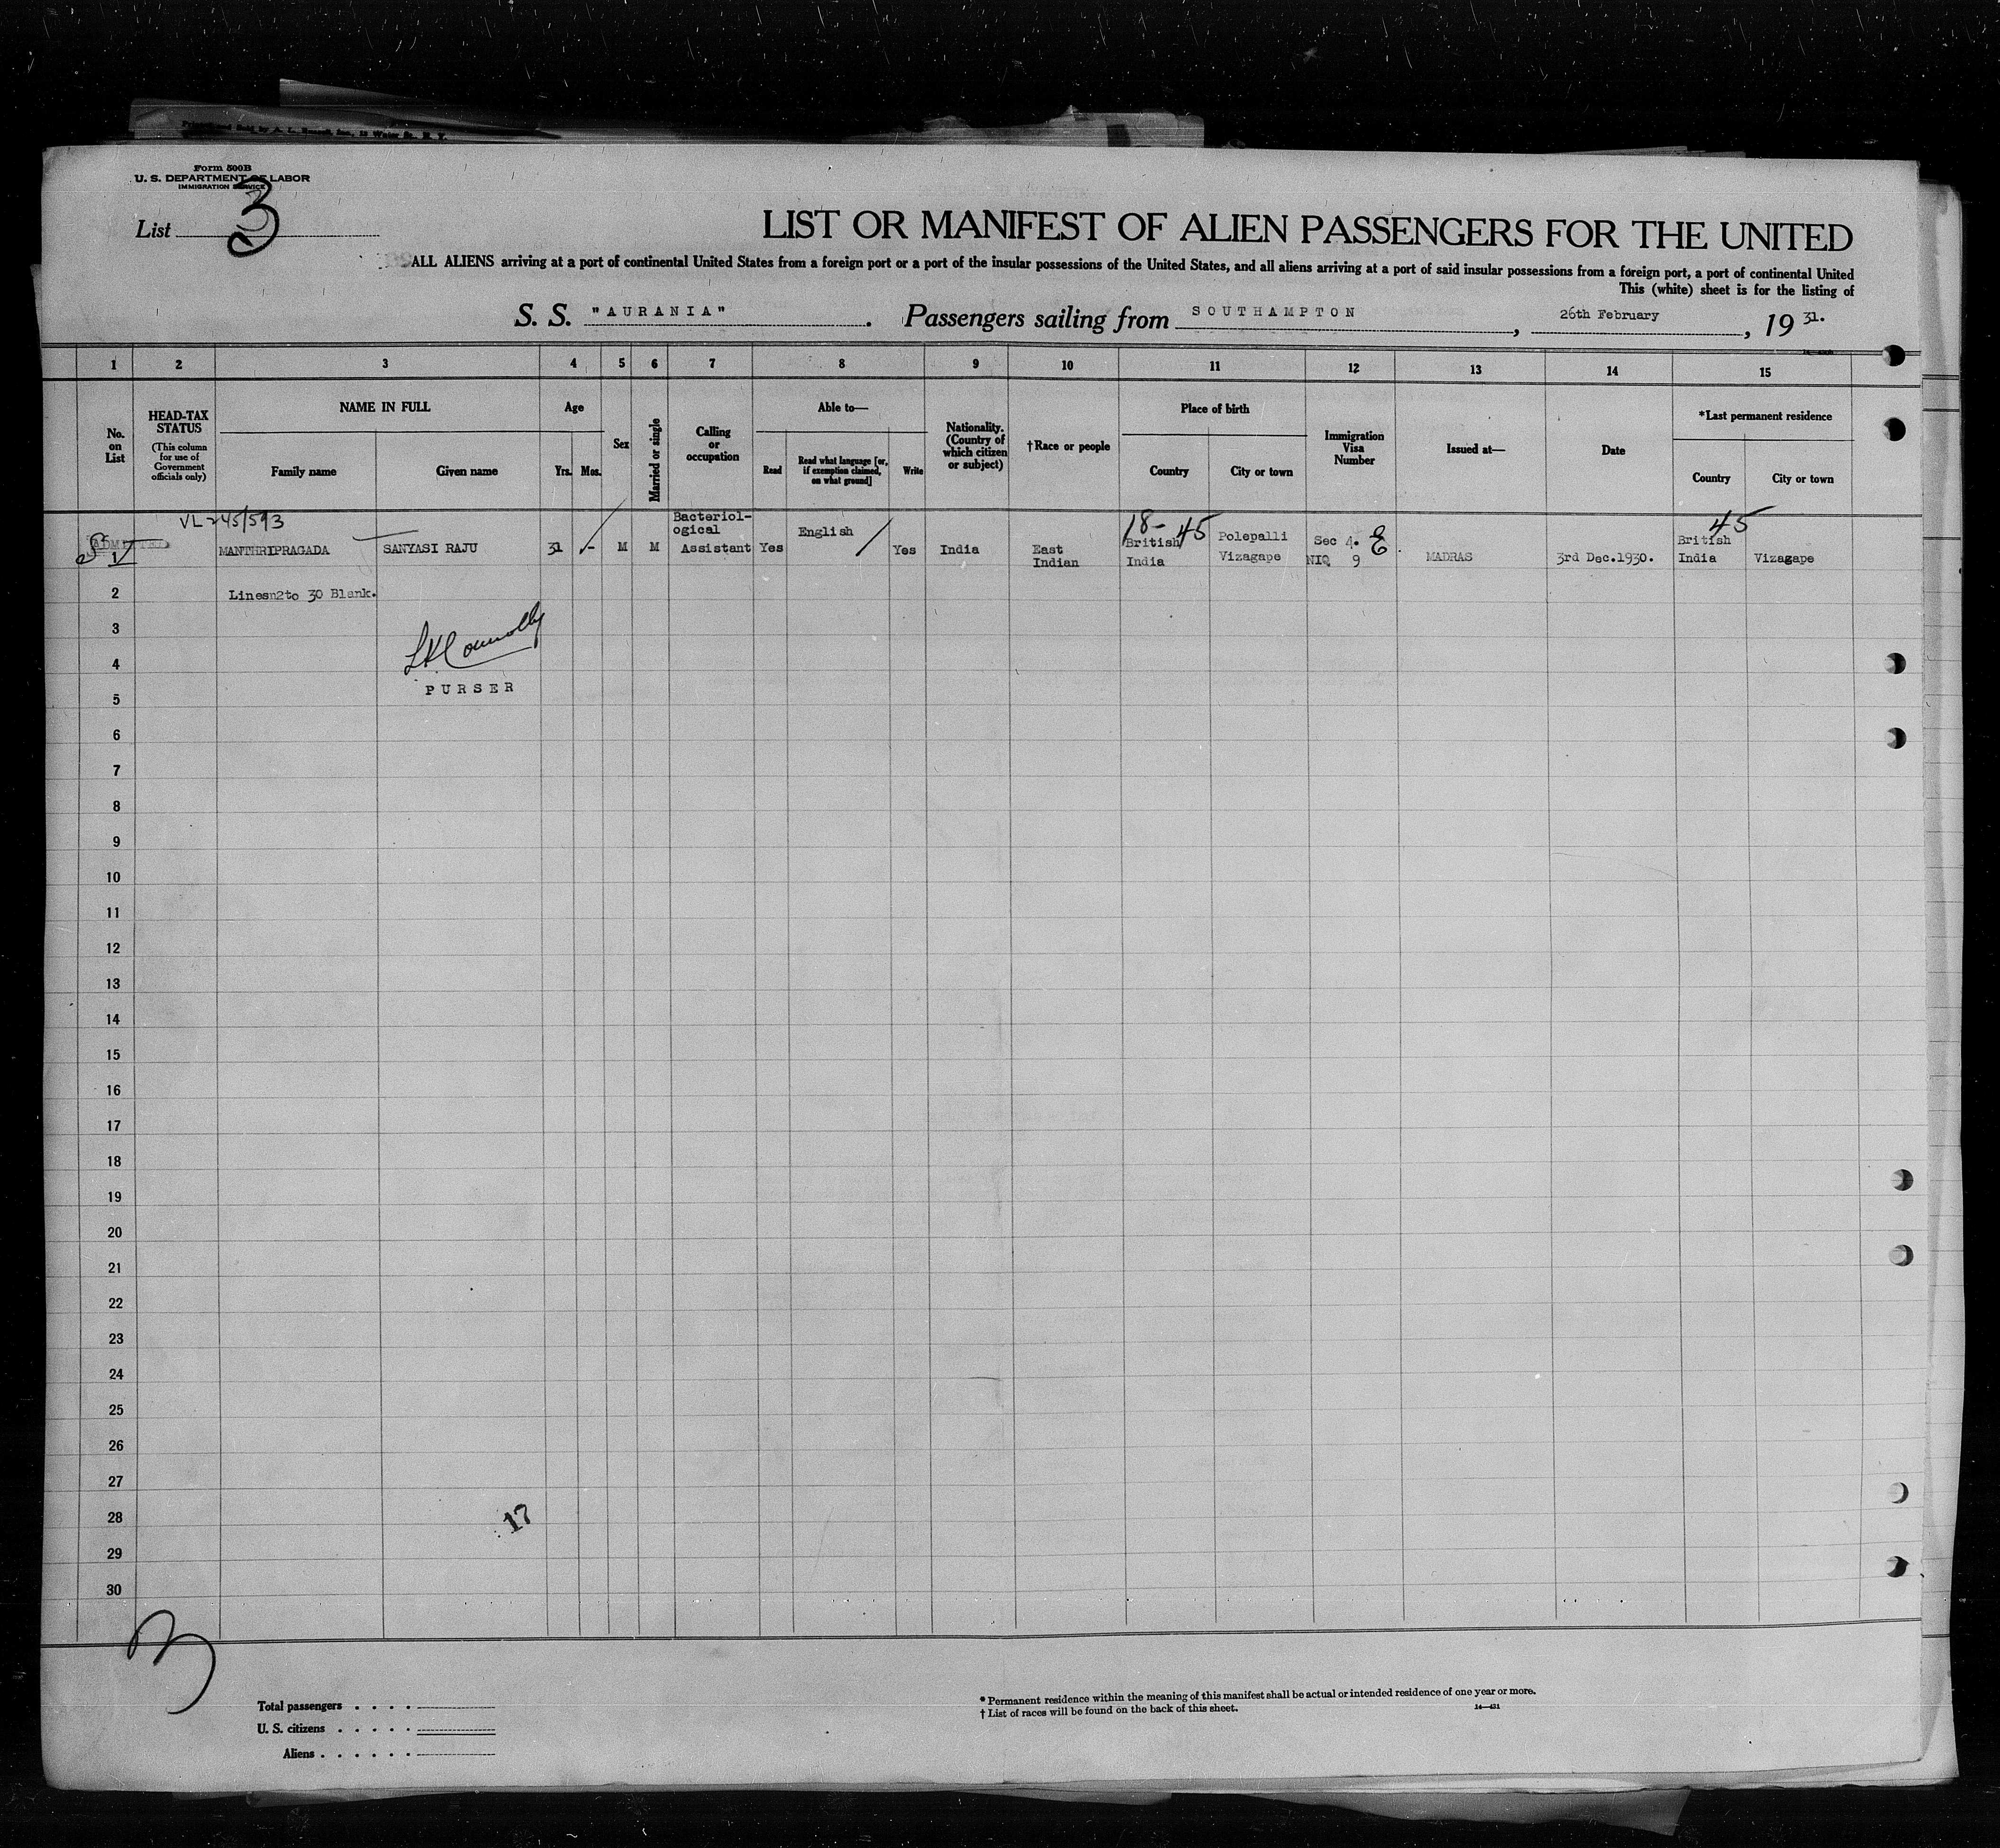 Form 500B
U. S. DEPARTMENT OF LABOR
IMMIGRATION SERVICE
List 3
LIST OR MANIFEST OF ALIEN PASSENGERS FOR THE UNITED
ALL ALIENS arriving at a port of continental United States from a foreign port or a port of the insular possessions of the United States, and all aliens arriving at a port of said insular possessions from a foreign port, a port of continental United
This (white) sheet is for the listing of
S. S. "AURANIA". Passengers sailing from SOUTHAMPTON, 26th February, 19 31.
1 2 3 4 5 6 7 8 9 10 11 12 13 14 15
No. on List
HEAD-TAX STATUS
(This column for use of Government officials only)
NAME IN FULL
Family name
Given name
Age
Yrs. Mos.
Sex
Married or single
Calling or occupation
Able to—
Read
Read what language [or, if exemption claimed, on what ground]
Write
Nationality. (Country of which citizen or subject)
†Race or people
Place of birth
Country
City or town
Immigration Visa Number
Issued at—
Date
*Last permanent residence
Country
City or town
VL-245/593
18-45
45
ADMITTED
1 MANTHRIPRAGADA SANYASI RAJU 31 - M M Bacteriological Assistant Yes English Yes India East Indian British India Polepalli Vizagape Sec 4. E. NIQ 9 MADRAS 3rd Dec.1930. British India Vizagape
2 Linesn2to 30 Blank.
3
4
PURSER
5
6
7
8
9
10
11
12
13
14
15
16
17
18
19
20
21
22
23
24
25
26
27
28
17
29
30
3
Total passengers
U. S. citizens
Aliens
* Permanent residence within the meaning of this manifest shall be actual or intended residence of one year or more.
† List of races will be found on the back of this sheet.
14—431